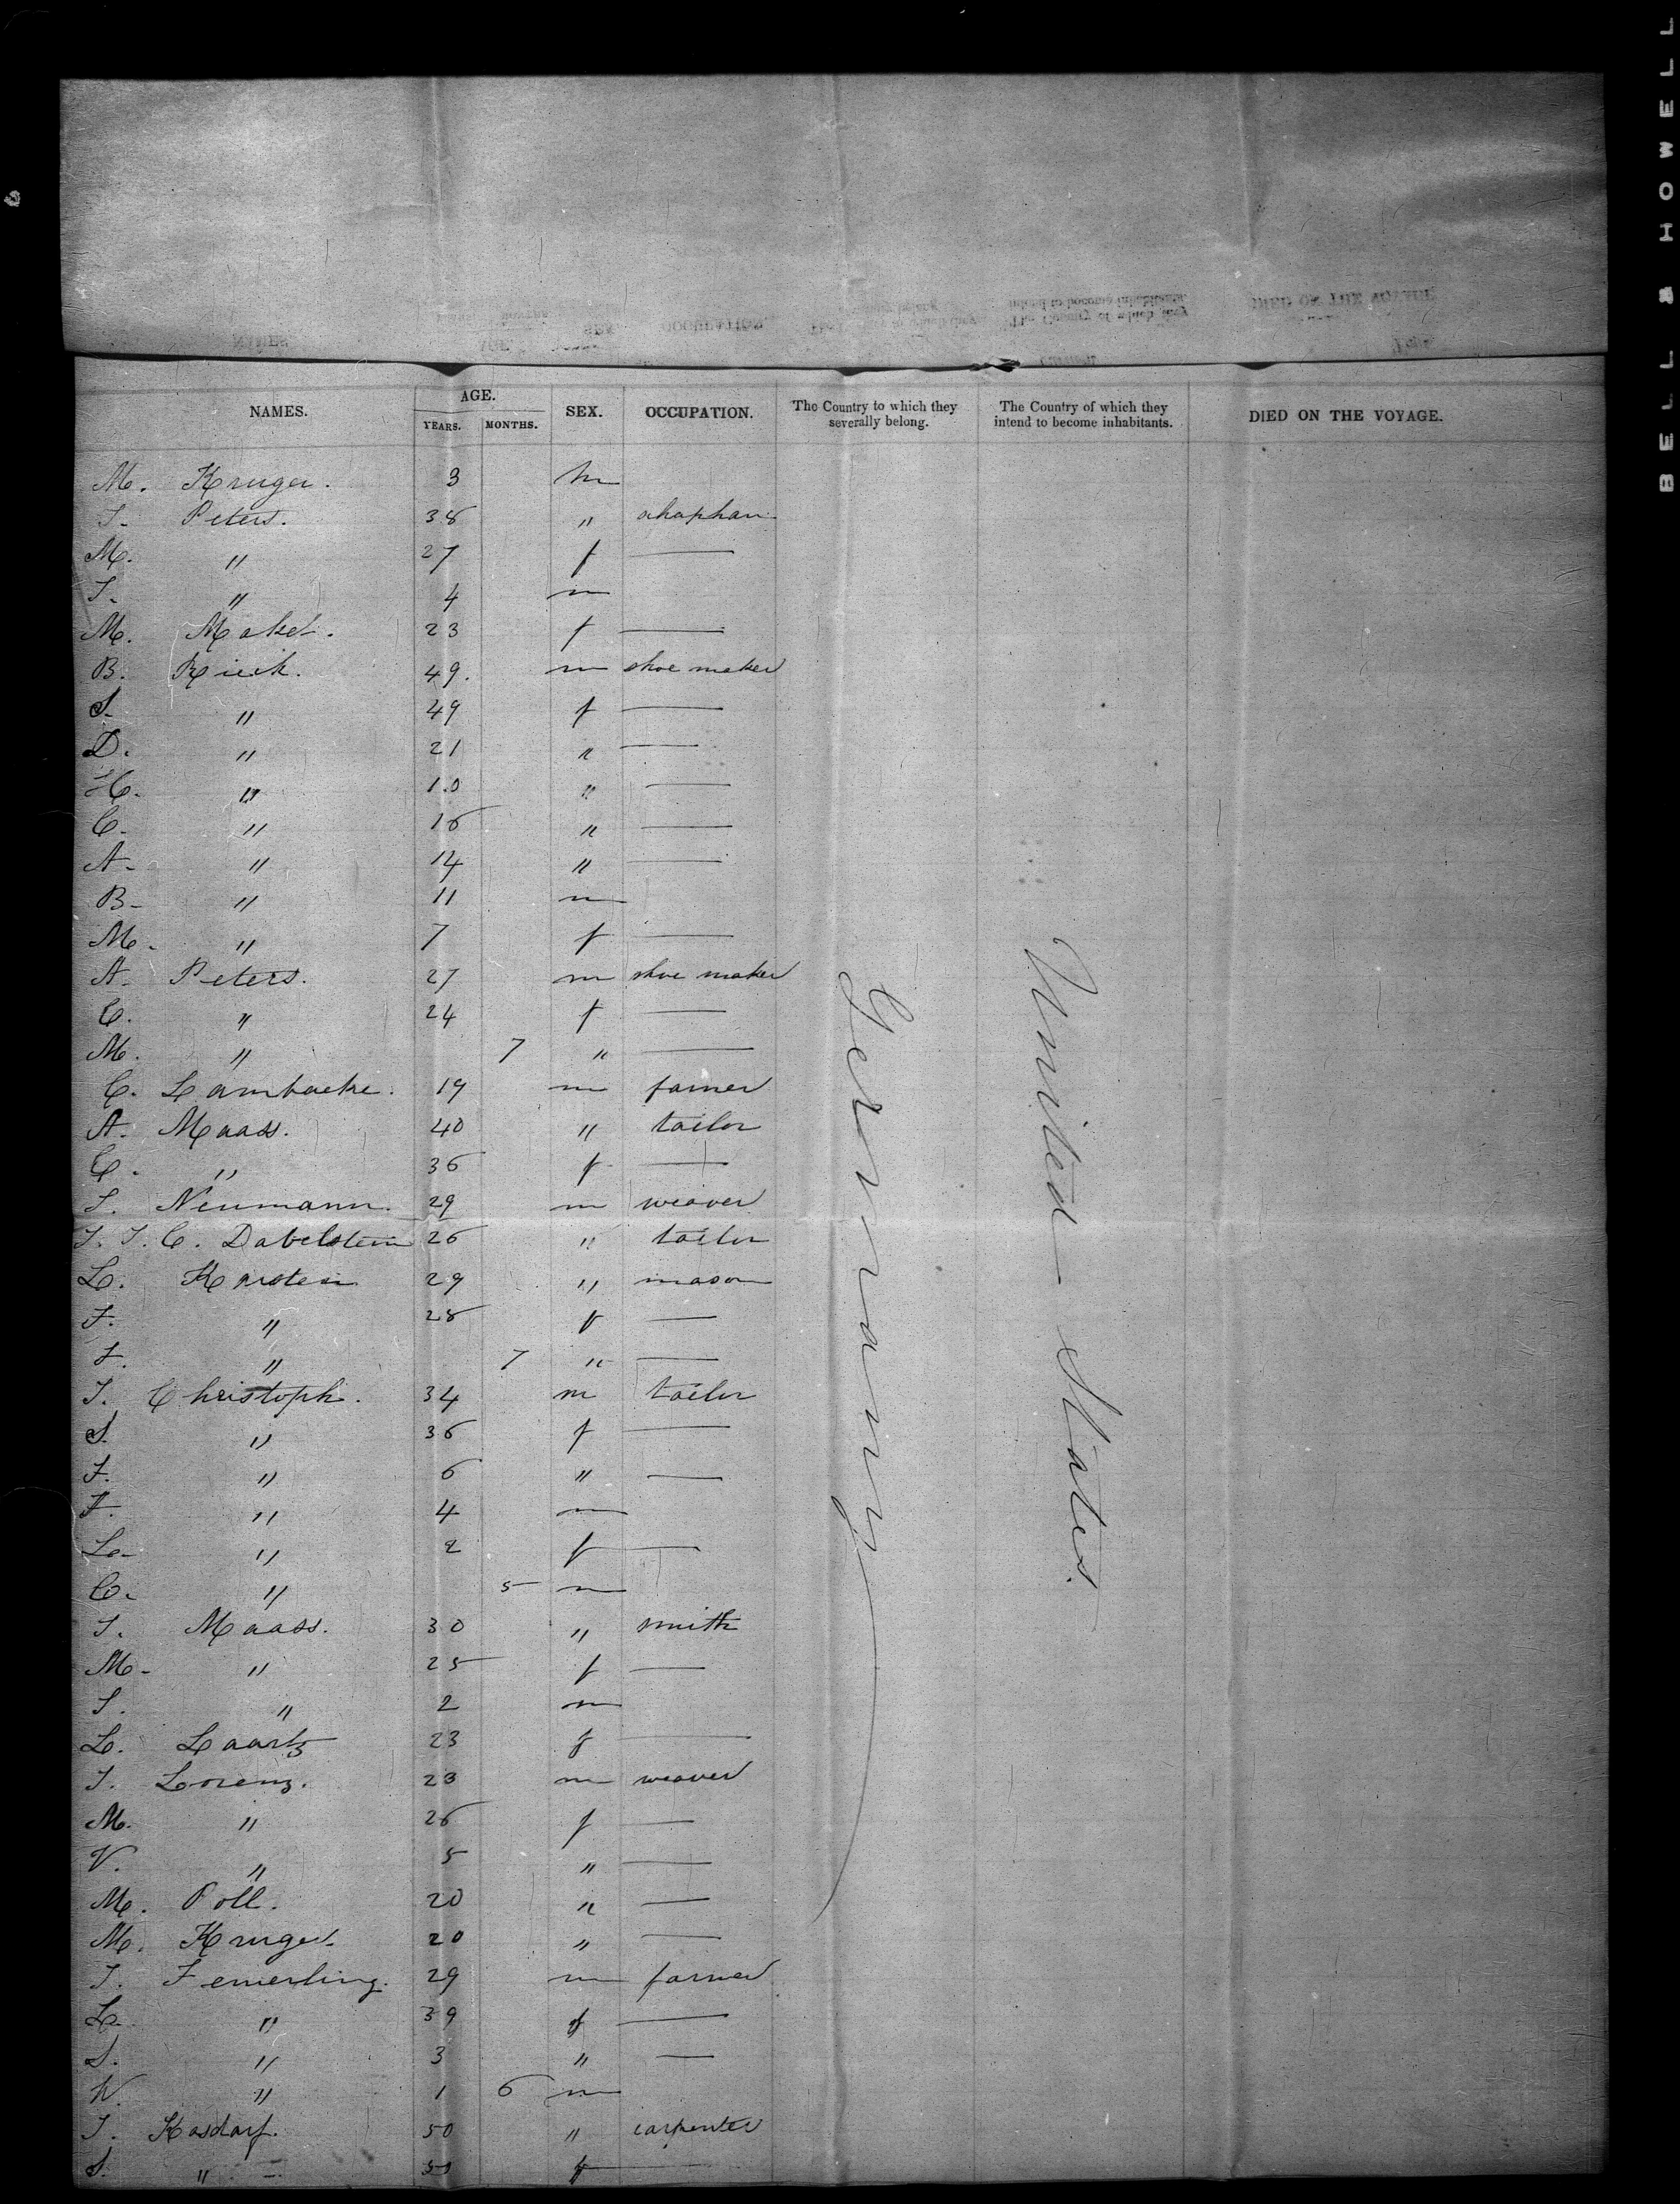 BELL & HOWELL
NAMES. AGE. YEARS. MONTHS. SEX. OCCUPATION. The Country to which they severally belong. The Country of which they intend to become inhabitants. DIED ON THE VOYAGE.
M. Kruger. 3 m
J. Peters. 38 "
M. " 27 f —
J. " 4 m
M. 23 f —
B. Rieck. 49. m shoe maker
S. " 49 f —
D. " 21 " —
H. " 10 " —
C. " 16 " —
A. " 14 " —
B. " 11 m
M. " 7 f —
A. Peters. 27 m shoe maker
C. " 24 f —
M. " 7 " —
C. Lambacke. 19 m farmer
A. Maass. 40 " tailor
C. " 36 f —
J. Neumann. 29 m weaver
J. J. C. Dabelstein 26 " tailor
L. Karsten 29 " mason
F. " 28 f —
F. " 7 " —
J. Christoph. 34 m tailor
S. " 36 f —
F. " 6 " —
F. " 4 m
L. " 2 f —
C. " 5 m
J. Maass. 30 " smith
M. " 25 f —
J. " 2 m
L. Laartz 23 f —
J. Lorenz. 23 m weaver
M. " 26 f —
V. " 5 " —
M. Poll. 20 " —
M. Kruger 20 " —
J. Femerling. 29 m farmer
L. " 39 f —
S. " 3 " —
W. " 1 6 m
J. Kasdarf. 50 " carpenter
S. " f —
Germany
United States.